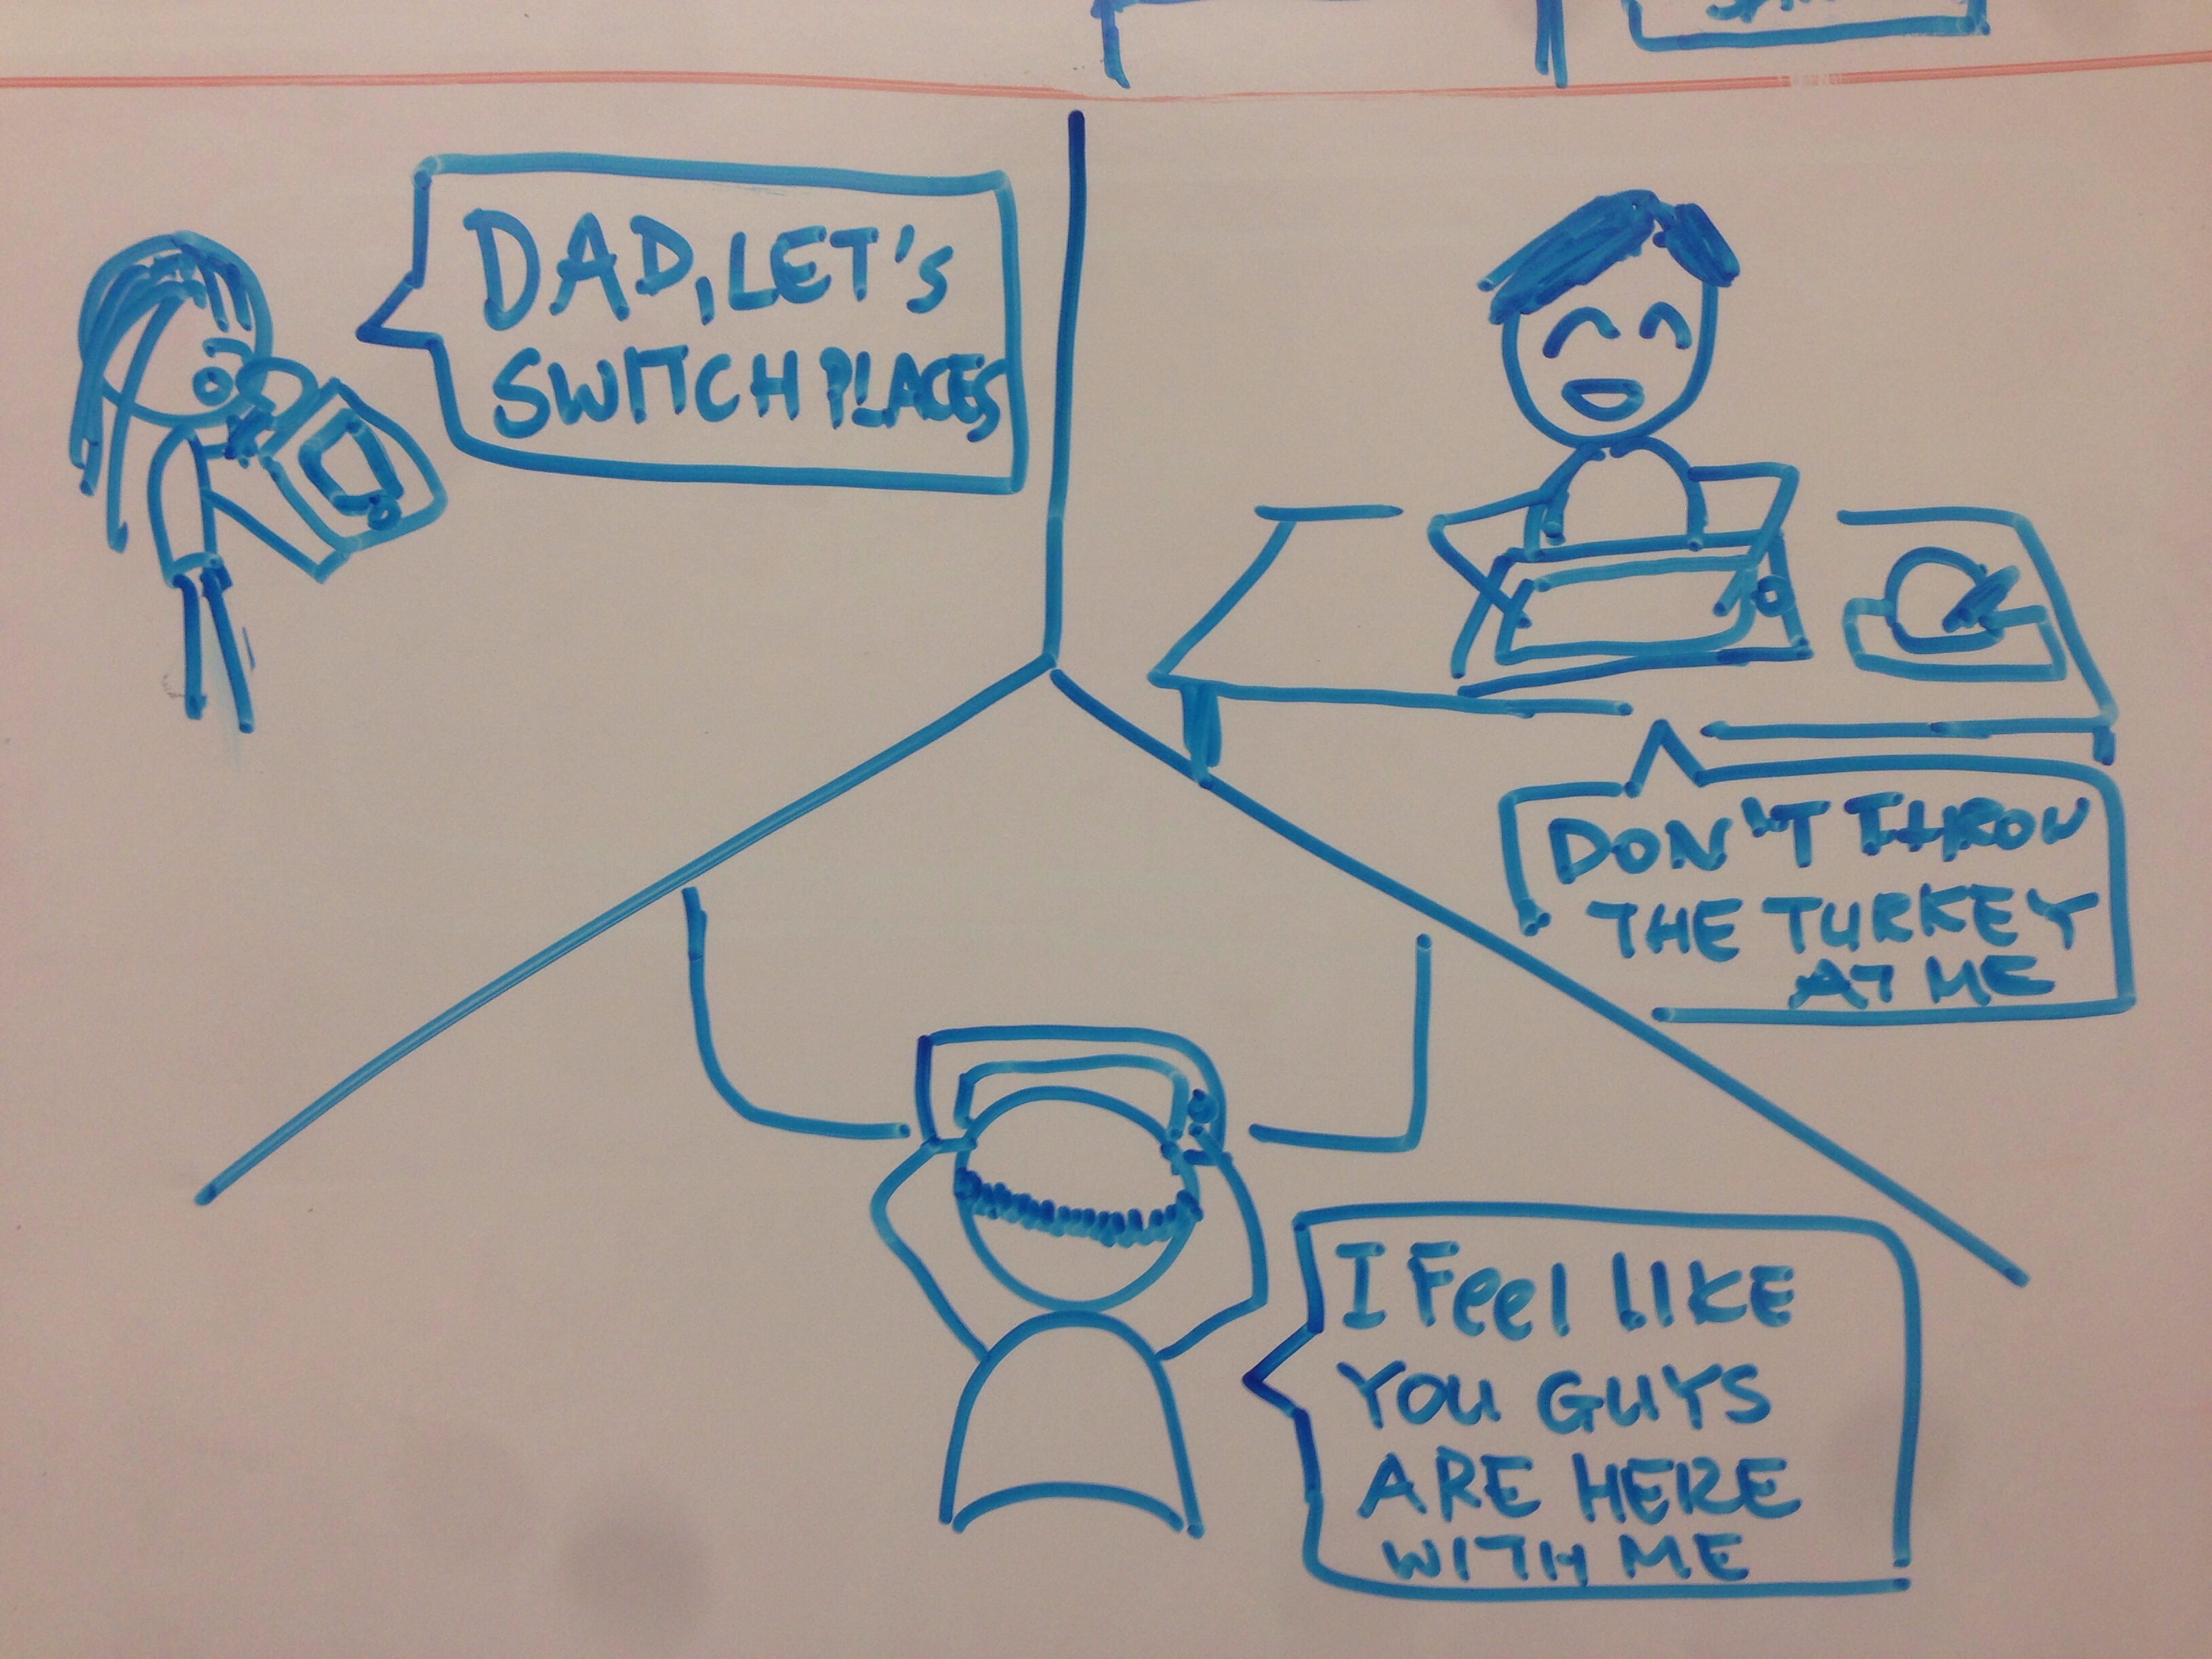 DAD, LET's
SWITCH PLACES
DON'T THROW
THE TURKEY
AT ME
I Feel LIKE
YOU GUYS
ARE HERE
WITH ME